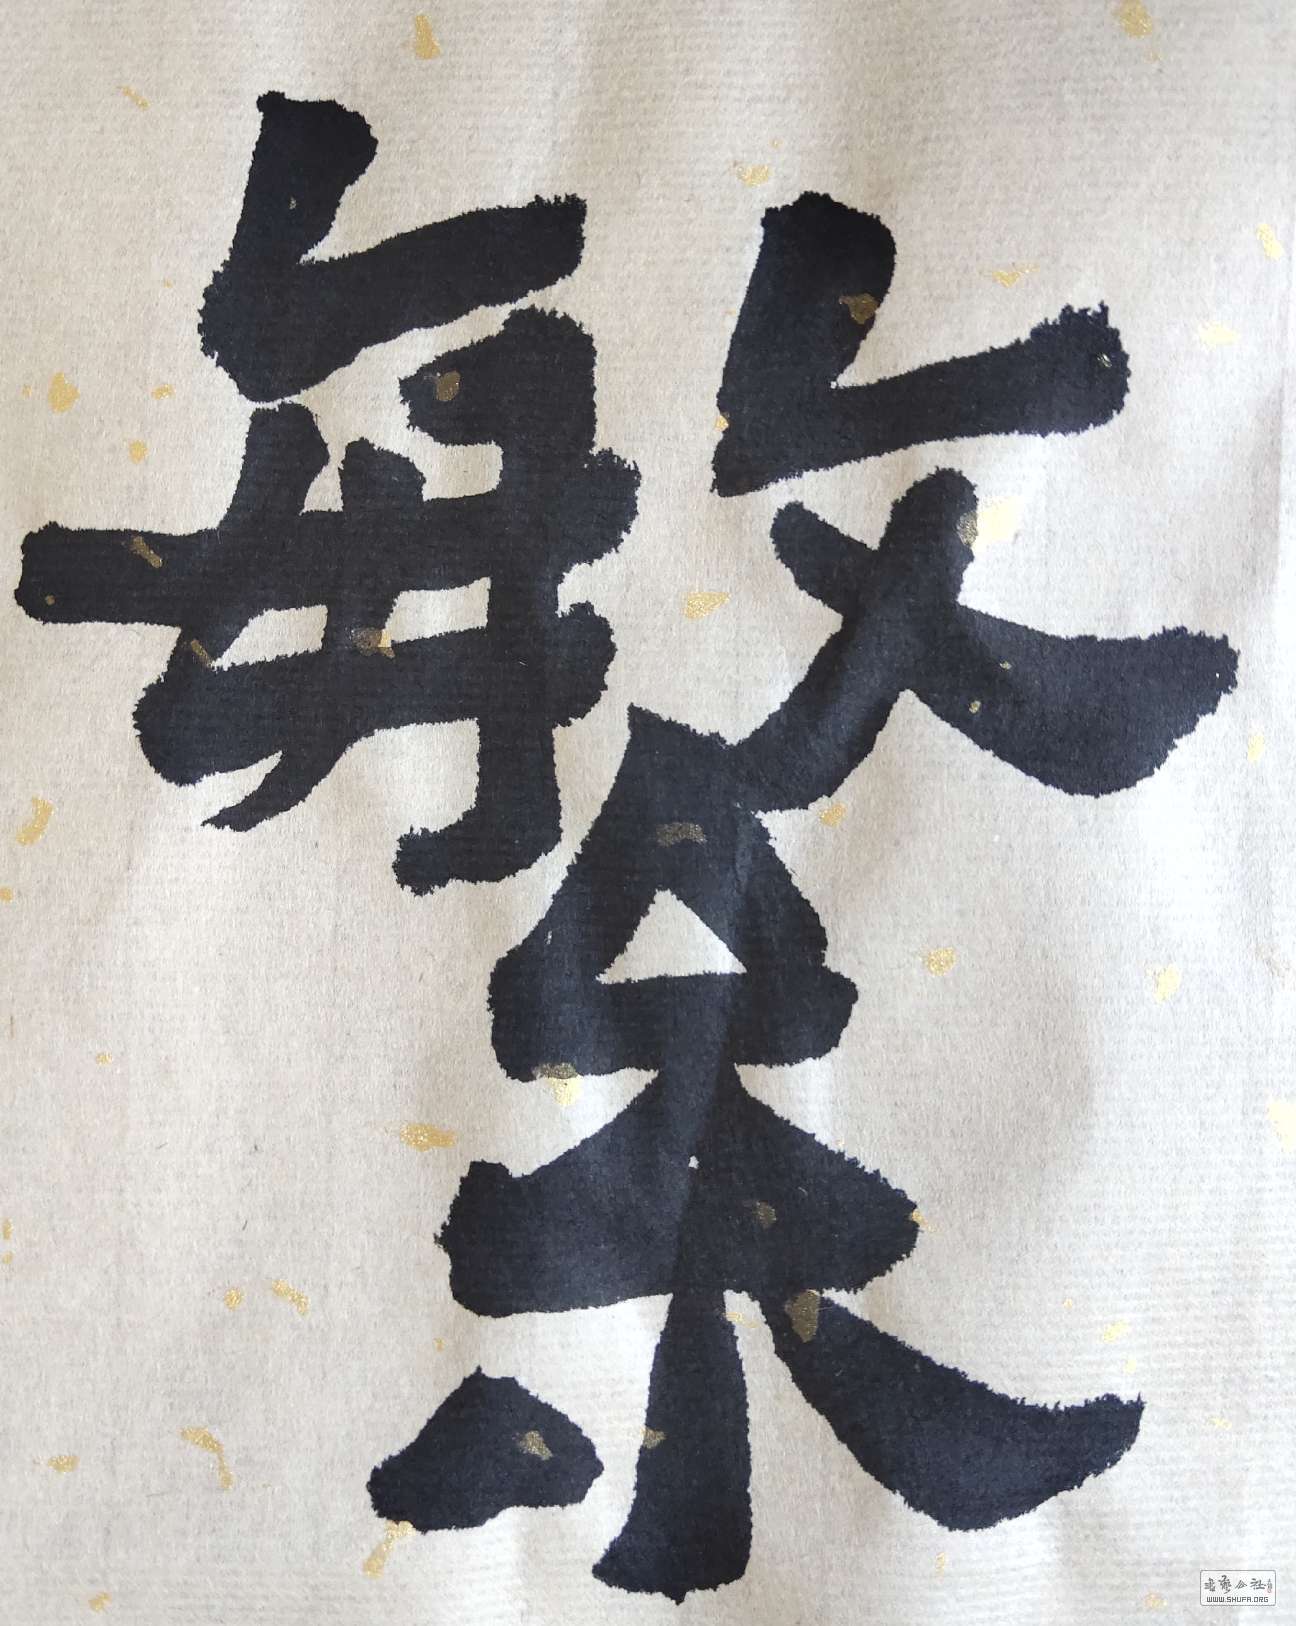 繁
書艺公社
WWW.SHUFA.ORG